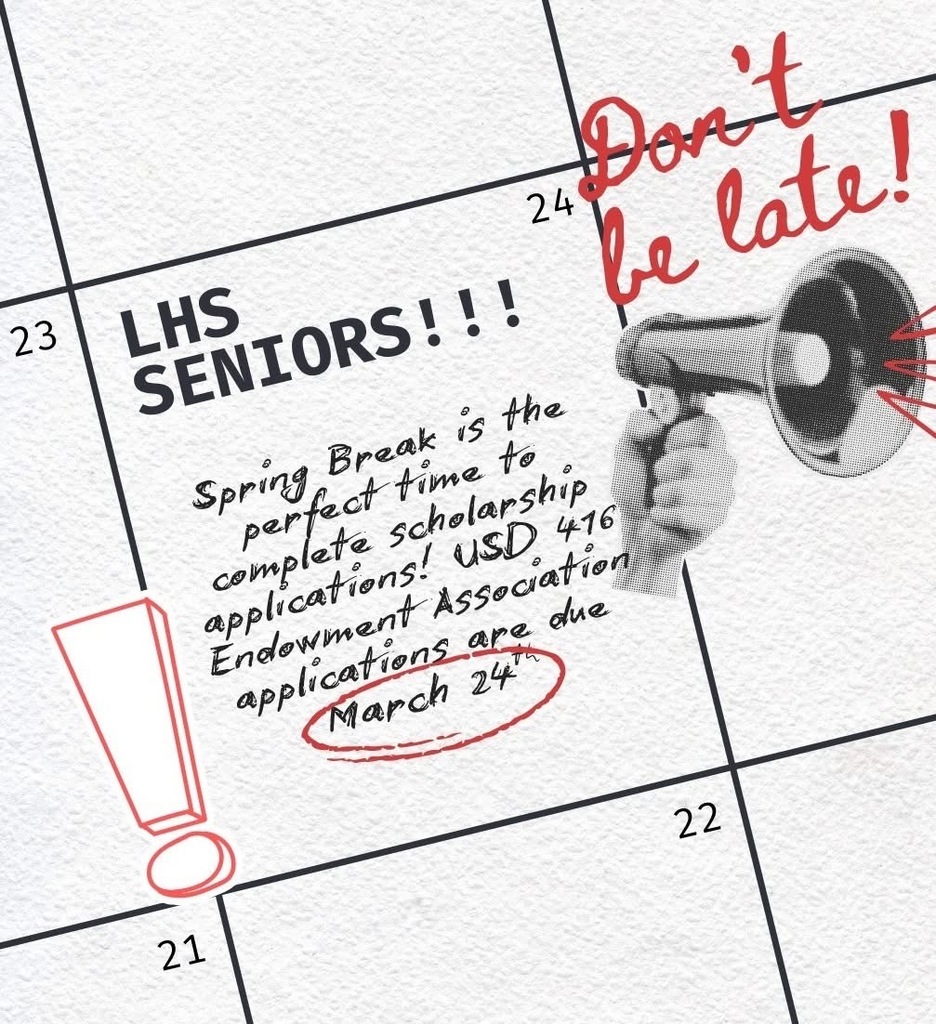 Don't
be late!
24
23
LHS
SENIORS!!!
Spring Break is the
perfect time to
complete scholarship
applications! USD 416
Endowment Association
applications are due
March 24th
22
21